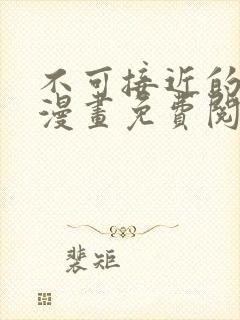 不可接近的
漫畫免費閱
裴矩